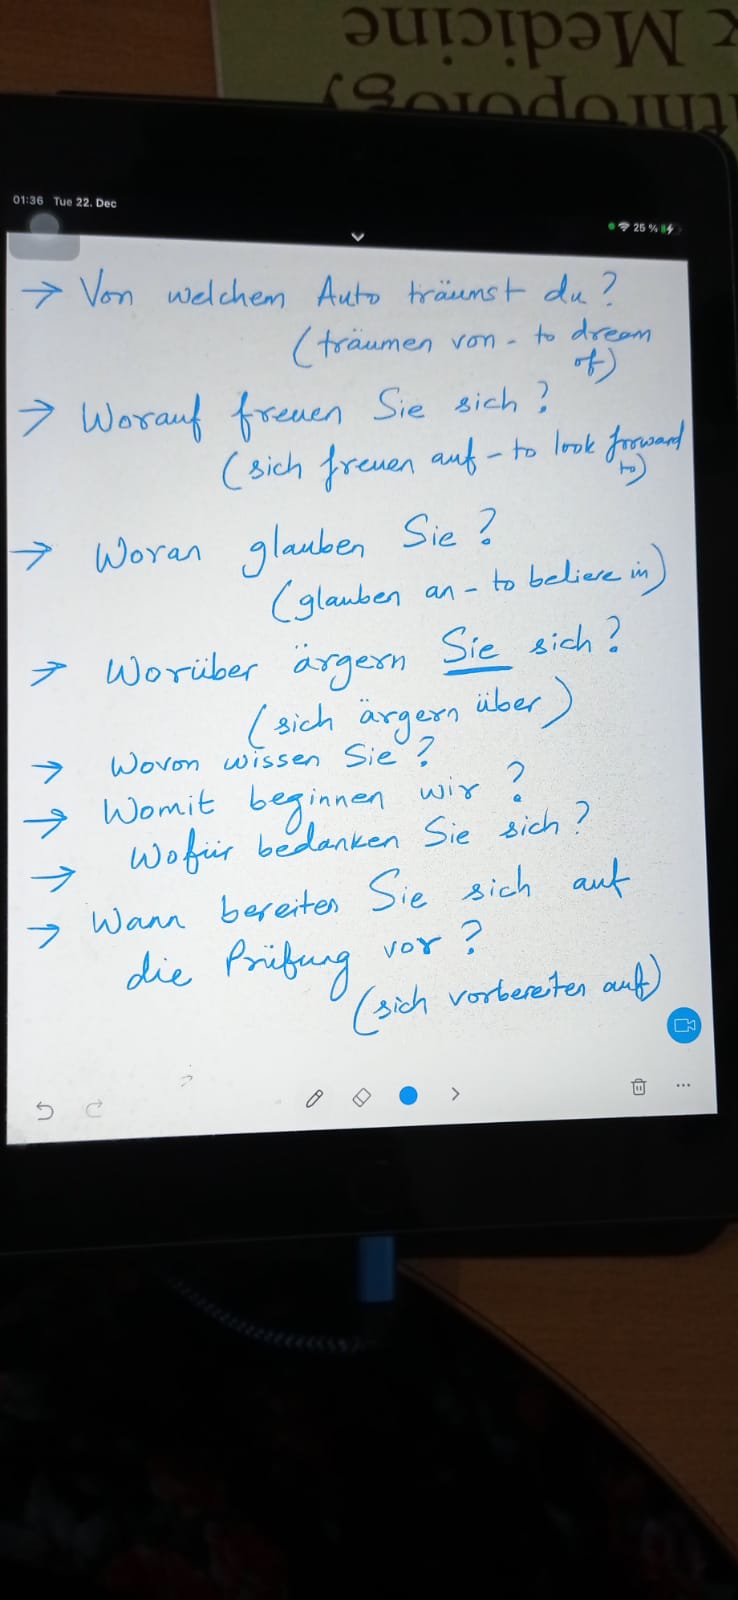 & Medicine
thropology
01:36 Tue 22. Dec
25 %
→ Von welchem Auto träumst du?
(träumen von - to dream
of)
→ Worauf freuen Sie sich?
(sich freuen auf - to look forward
to)
→ Woran glauben Sie?
(glauben an - to believe in)
→ Worüber ärgern Sie sich?
(sich ärgern über)
→ Wovon wissen Sie?
→ Womit beginnen wir?
→ Wofür bedanken Sie sich?
→ Wann bereiten Sie sich auf
die Prüfung vor?
(sich vorbereiten auf)